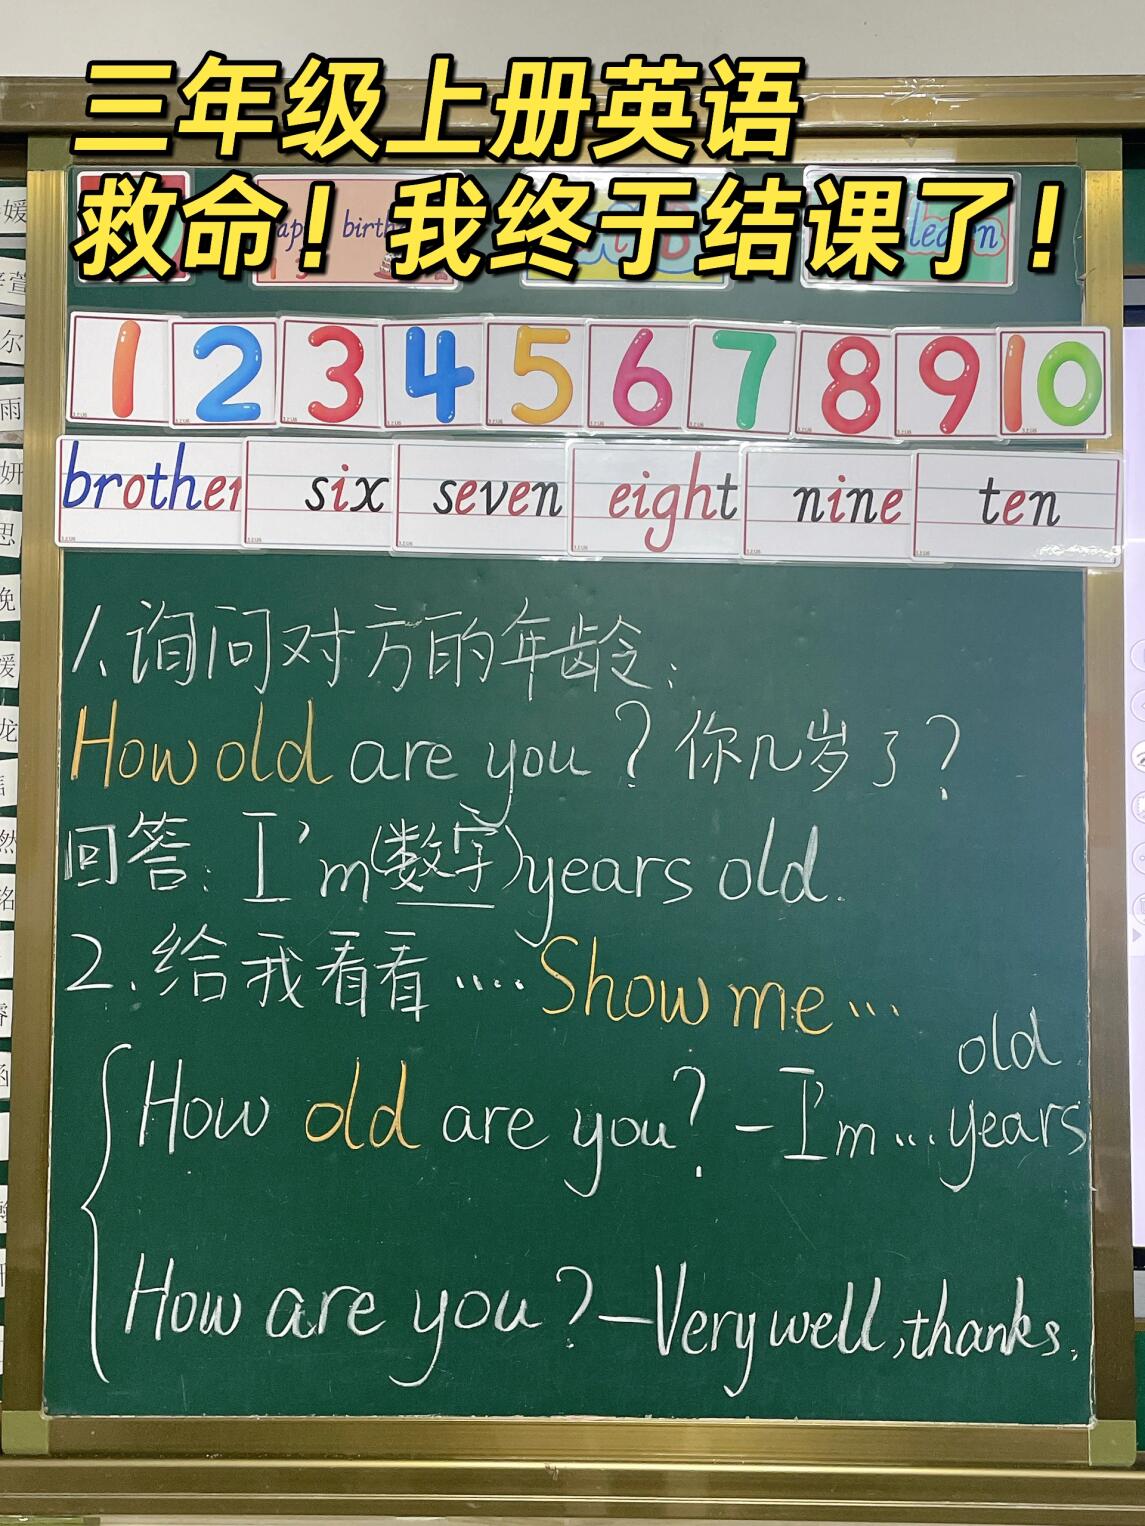 三年级上册英语
救命！我终于结课了！
birth
learn
1 2 3 4 5 6 7 8 9 10
brother six seven eight nine ten
1、询问对方的年龄：
How old are you？你几岁了？
回答：I'm(数字)years old.
2.给我看看....Show me...
old
How old are you? - I'm ... years
How are you? - Very well, thanks.